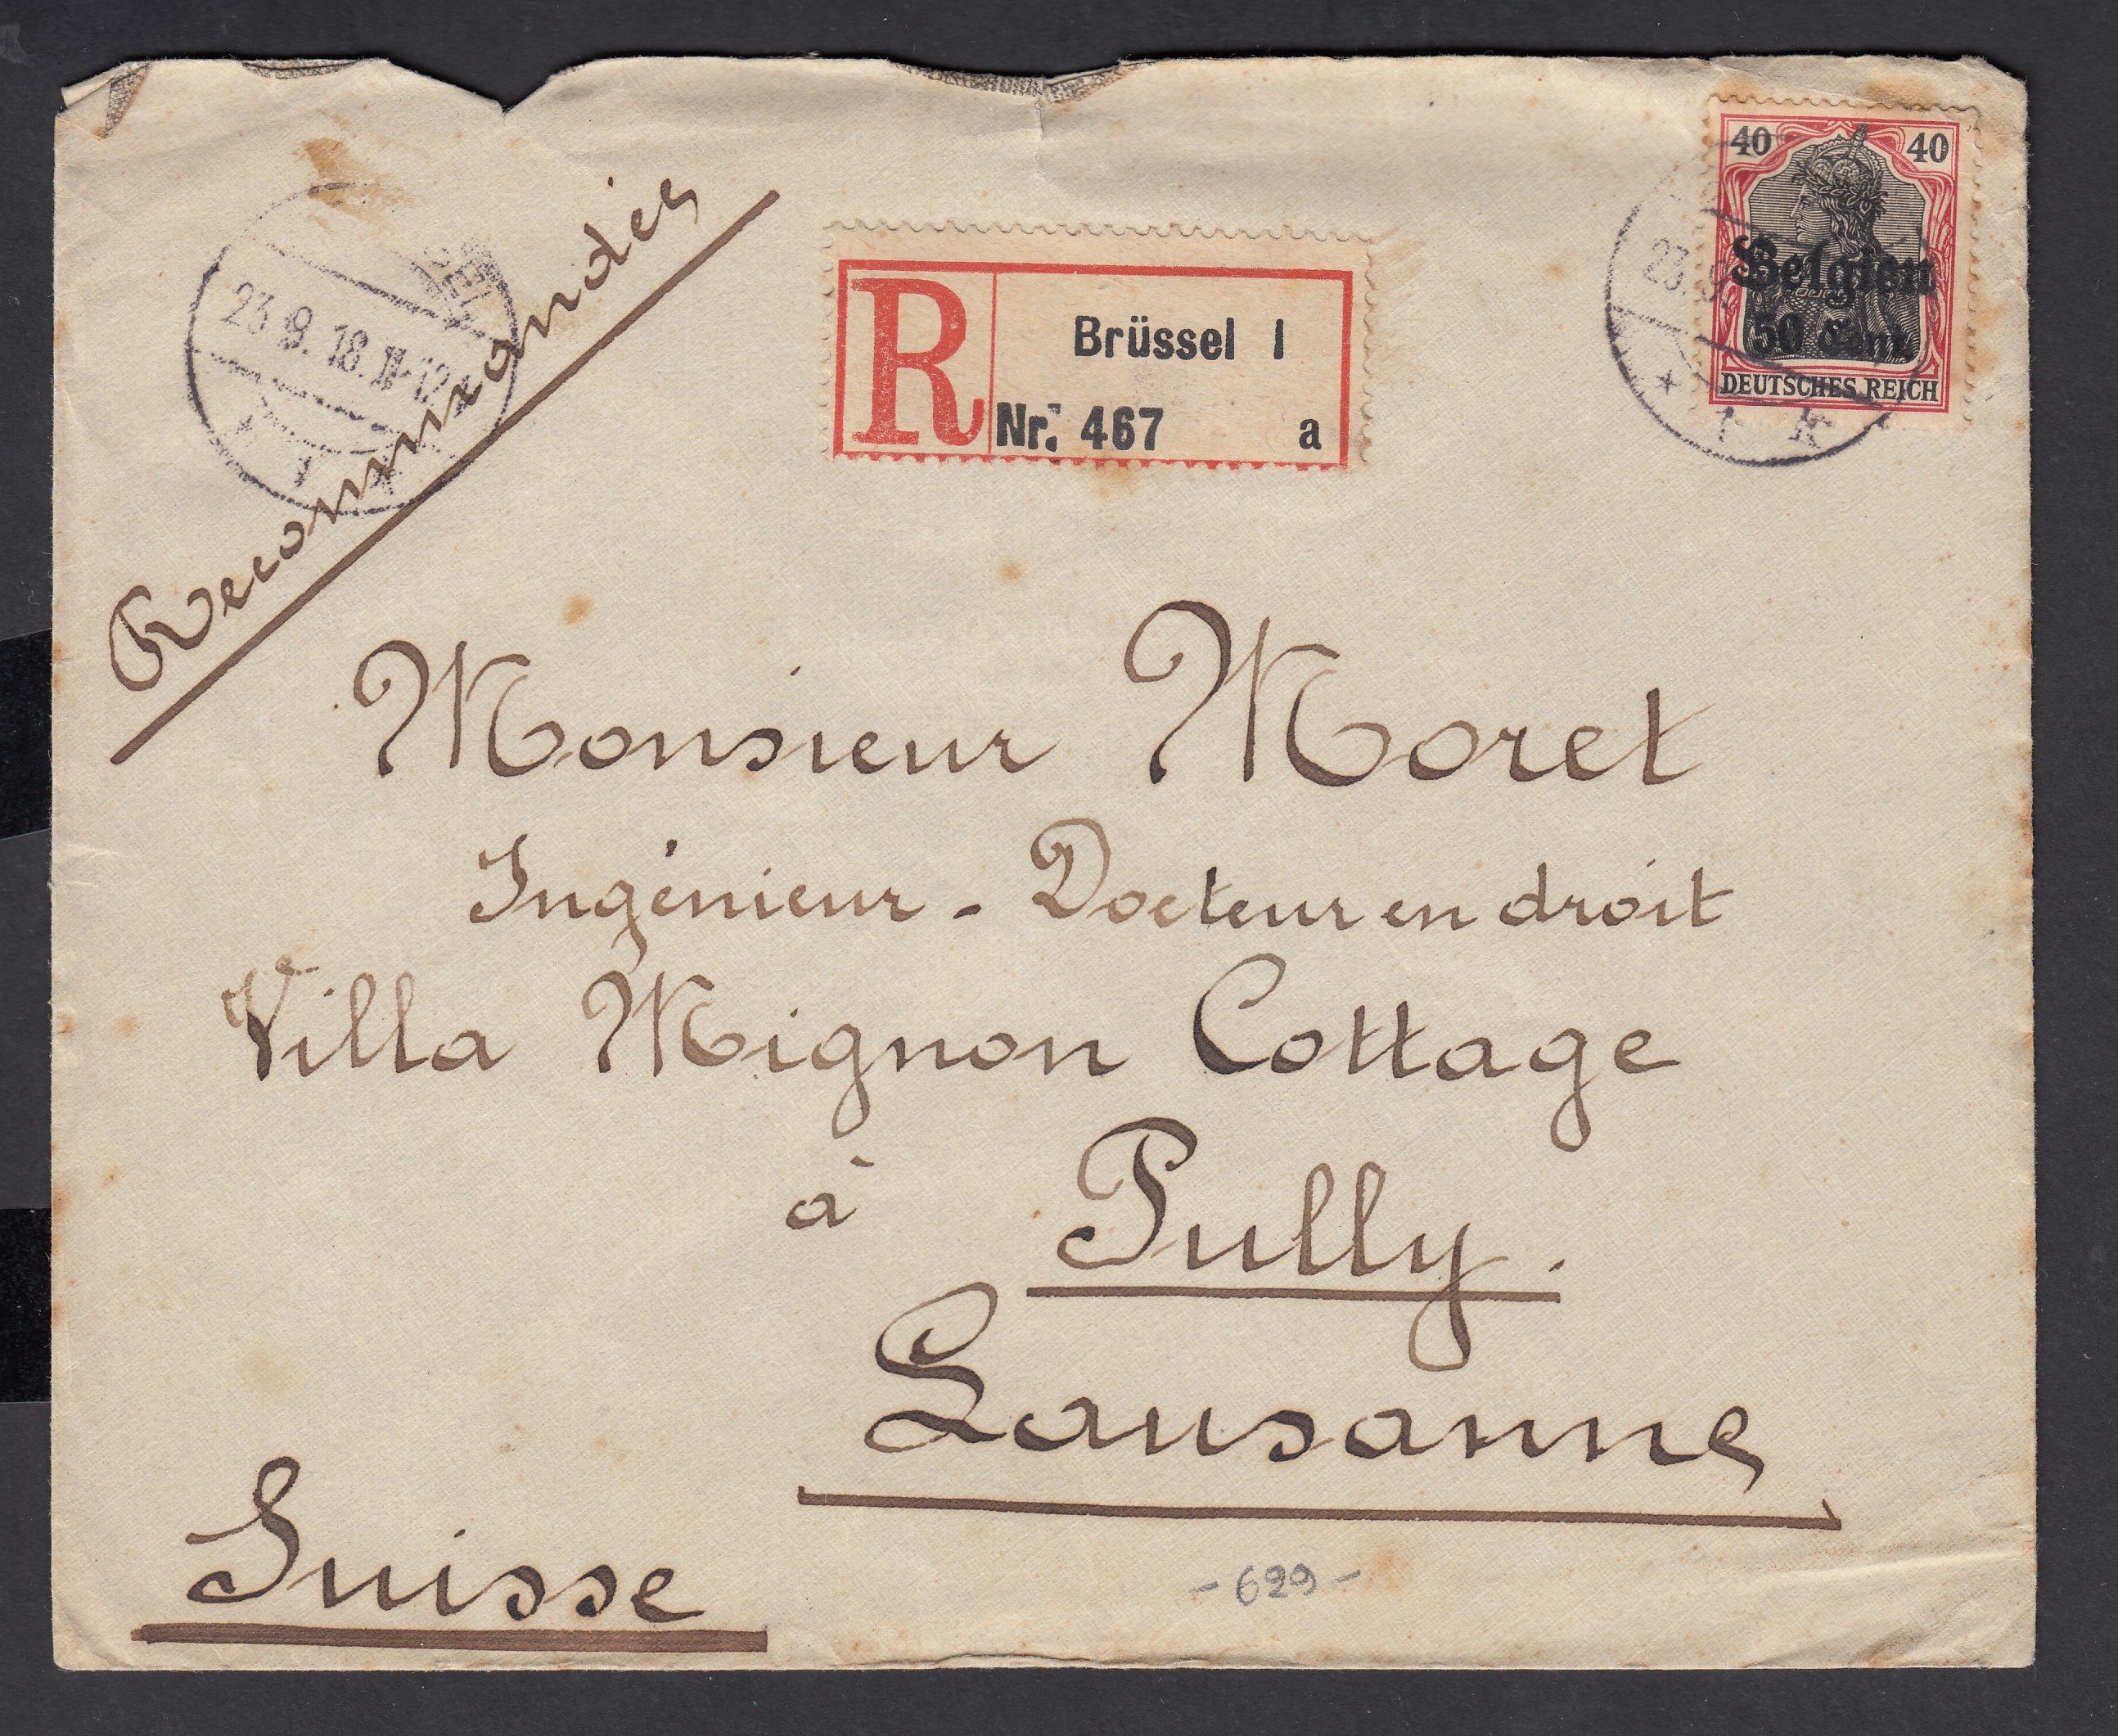 Recommandée
23.9.18.11-12V
* 1 k
R
Brüssel 1
Nr. 467 a
40 40
Belgien
50 Cent.
DEUTSCHES REICH
23.9.
* 1 k
Monsieur Moret
Ingénieur - Docteur en droit
Villa Mignon Cottage
à Pully.
Lausanne
Suisse
- 629 -